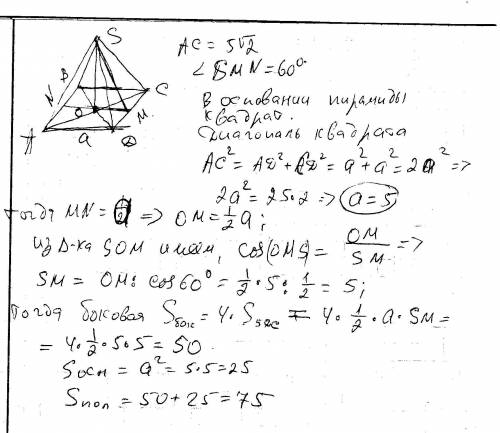 S
B
N
C
O
M
A
a
D
AC = 5√2
∠ SMN = 60°
В основании пирамиды
квадрат.
Диагональ квадрата
AC² = AD² + CD² = a² + a² = 2a² =>
2a² = 25·2 => a = 5
Тогда MN = a => OM = ½ a;
из Δ-ка SOM имеем, cos(OMS) = OM/SM =>
SM = OM : cos 60° = ½ · 5 : ½ = 5;
Тогда боковая Sбок = 4 · SSDC = 4 · ½ · a · SM =
= 4 · ½ · 5 · 5 = 50
Sосн = a² = 5·5 = 25
Sпол = 50 + 25 = 75